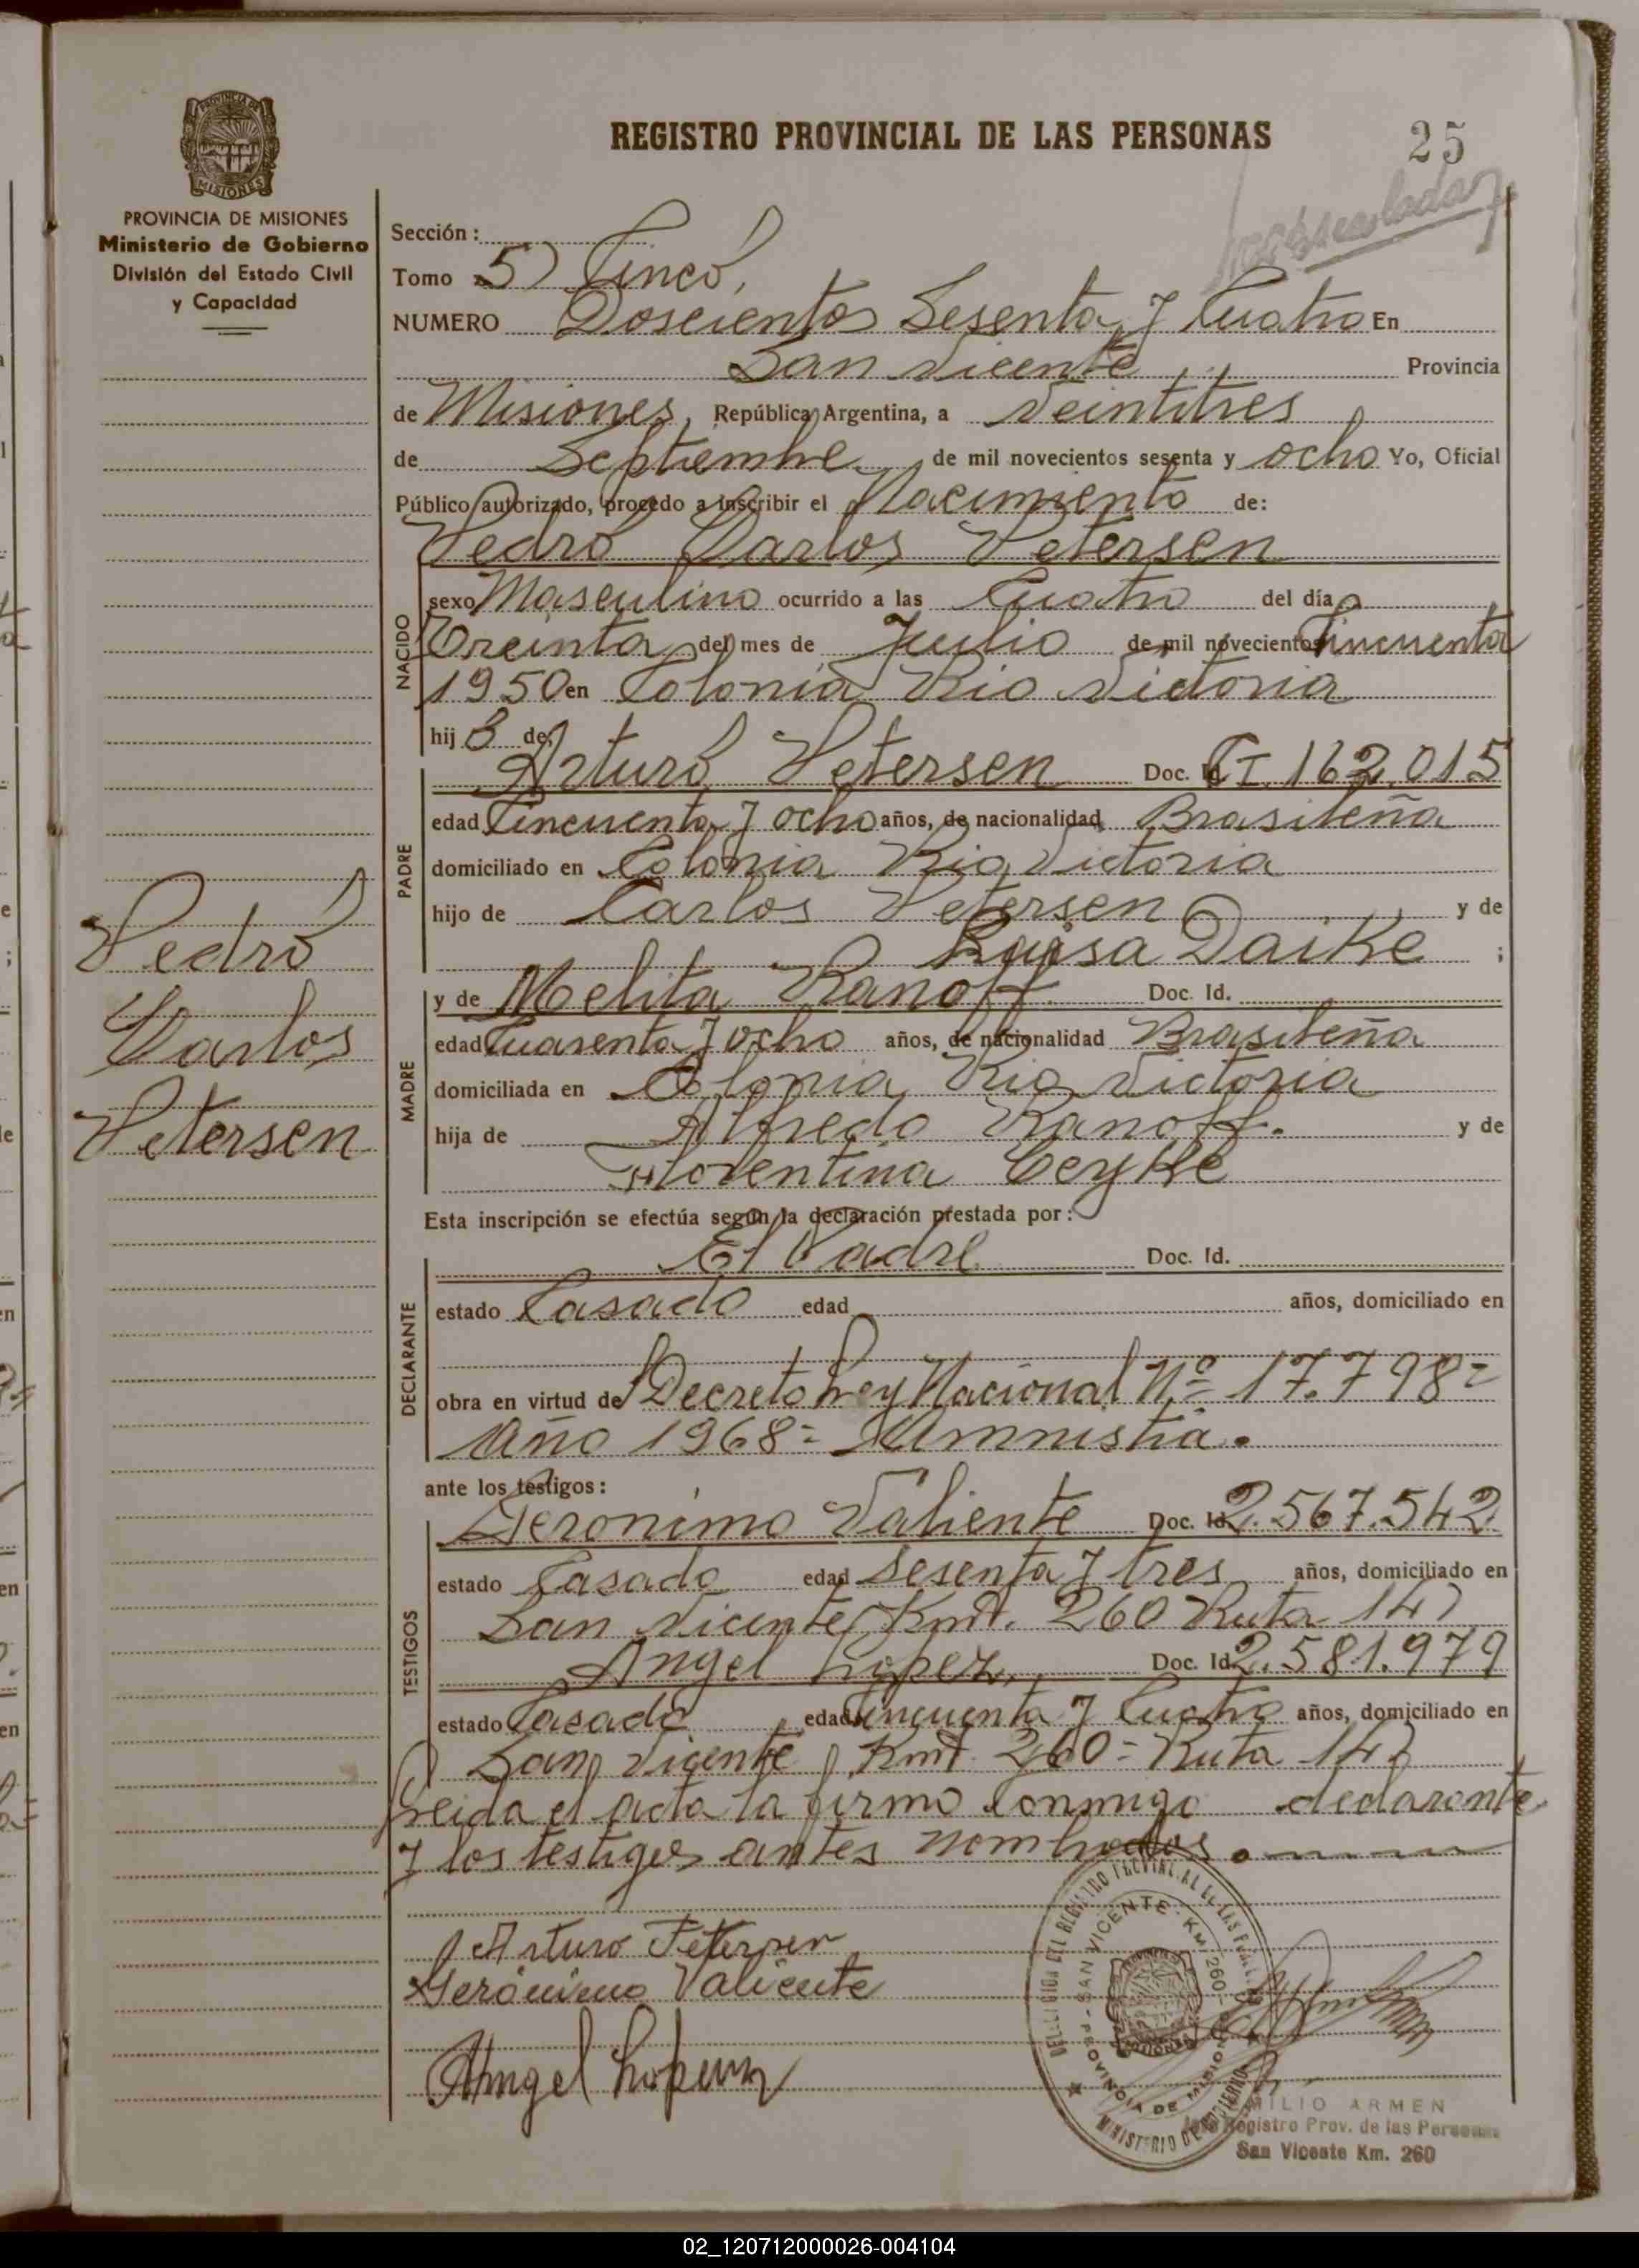 REGISTRO PROVINCIAL DE LAS PERSONAS
25
PROVINCIA DE MISIONES
MISIONES
PROVINCIA DE MISIONES
Ministerio de Gobierno
División del Estado Civil
y Capacidad
Sección :
Tomo 5) Cinco,
NUMERO Doscientos Sesenta y Cuatro En
San Vicente Provincia
de Misiones, República Argentina, a Veintitres
de Septiembre de mil novecientos sesenta y ocho Yo, Oficial
Público autorizado, procedo a inscribir el Nacimiento de:
Pedro Carlos Petersen
NACIDO
sexo Masculino ocurrido a las Cuatro del día
Treinta del mes de Julio de mil novecientos Cincuenta
1950 en Colonia Rio Victoria
hij o de:
PADRE
Arturo Petersen Doc. Id. C I. 162.015
edad Cincuenta y ocho años, de nacionalidad Brasileña
domiciliado en Colonia Rio Victoria
hijo de Carlos Petersen y de
Daike ;
MADRE
y de Melita Ranoff. Doc. Id.
edad Cuarenta y ocho años, de nacionalidad Brasileña
domiciliada en Colonia Rio Victoria
hija de Alfredo Ranoff. y de
Florentina
Esta inscripción se efectúa según la declaración prestada por :
DECLARANTE
El Padre Doc. Id.
estado Casado edad años, domiciliado en
obra en virtud de Decreto Ley Nacional Nº 17.798=
Año 1968= Amnistia.
ante los testigos :
TESTIGOS
Jeronimo Valiente Doc. Id 2.567.542
estado Casado edad Sesenta y tres años, domiciliado en
San Vicente Kmt. 260 Ruta 14)
Angel Lopez, Doc. Id. 2.581.979
estado Casado edad Cincuenta y Cuatro años, domiciliado en
San Vicente Kmt. 260= Ruta 14)
Leida el acta la firmo conmigo declarante
y los testigos antes nombrados.
Pedro
Carlos
Petersen
Arturo Petersen
Gerónimo Valiente
Angel
SAN VICENTE - KM 260 - PROVINCIA DE MISIONES
MINISTERIO DE GOBIERNO
MILIO ARMEN
Jefe Registro Prov. de las Personas
San Vicente Km. 260
02_120712000026-004104